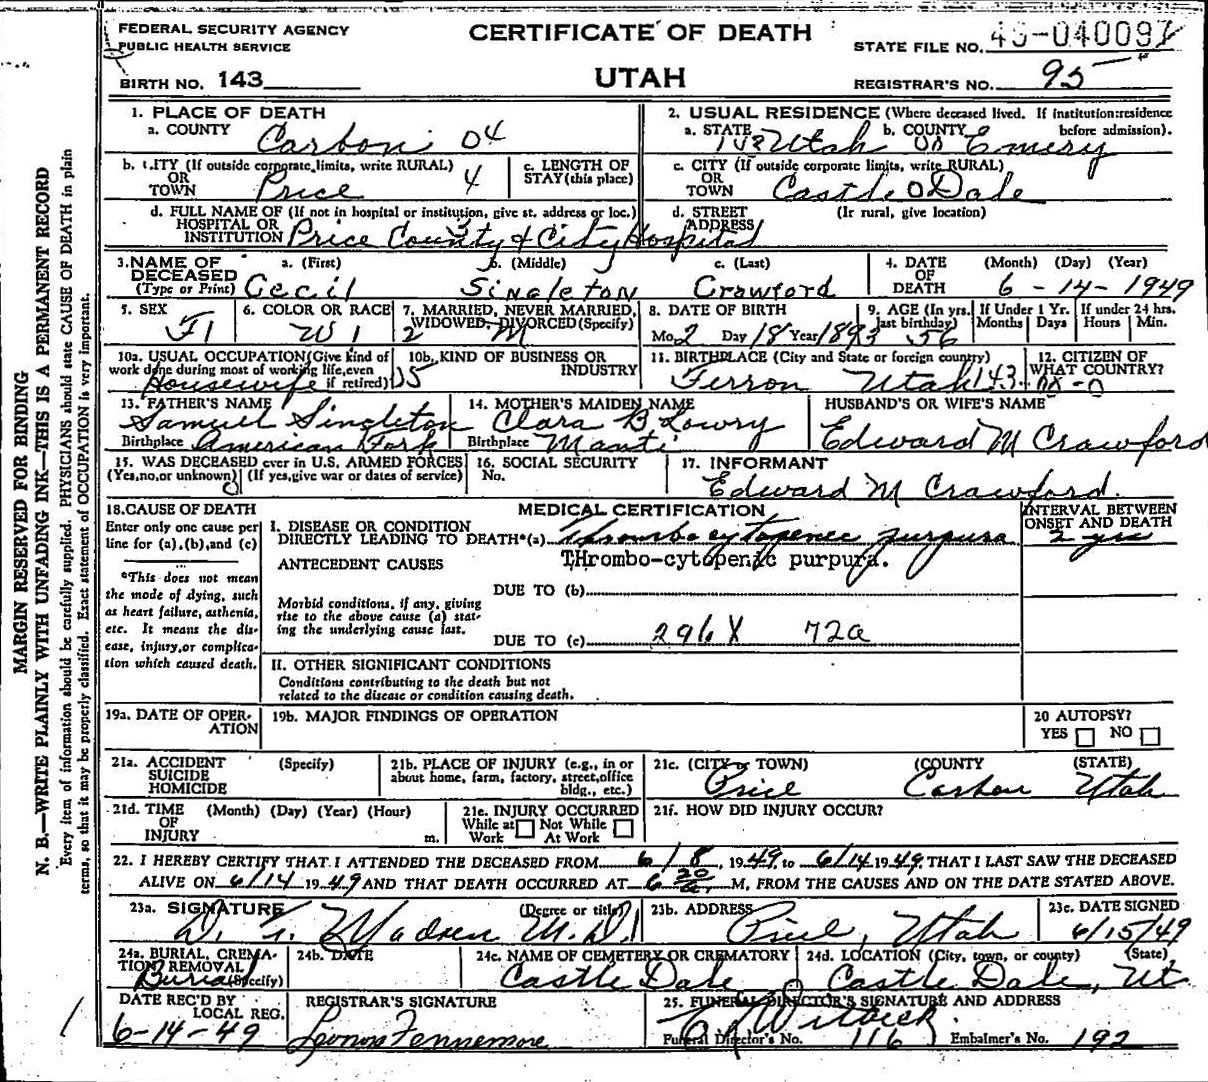 FEDERAL SECURITY AGENCY
PUBLIC HEALTH SERVICE
CERTIFICATE OF DEATH
STATE FILE NO.
BIRTH NO. 143
UTAH
REGISTRAR'S NO. 95
1. PLACE OF DEATH
a. COUNTY Carbon 04
2. USUAL RESIDENCE (Where deceased lived. If institution:residence before admission).
a. STATE Utah b. COUNTY Emery
b. CITY (If outside corporate limits, write RURAL) OR TOWN Price 4
c. LENGTH OF STAY (this place)
c. CITY (If outside corporate limits, write RURAL) OR TOWN Castle Dale
d. FULL NAME OF (If not in hospital or institution, give st. address or loc.) HOSPITAL OR INSTITUTION Price County & City Hospital
d. STREET ADDRESS (If rural, give location)
3. NAME OF DECEASED (Type or Print)
a. (First) Cecil
b. (Middle) Singleton
c. (Last) Crawford
4. DATE OF DEATH (Month) (Day) (Year) 6-14-1949
5. SEX F 1
6. COLOR OR RACE W 1
7. MARRIED, NEVER MARRIED, WIDOWED, DIVORCED (Specify) 2 M
8. DATE OF BIRTH Mo. 2 Day 18 Year 1893
9. AGE (In yrs. last birthday) 56
If Under 1 Yr. Months Days
If under 24 hrs. Hours Min.
10a. USUAL OCCUPATION (Give kind of work done during most of working life, even if retired) Housewife
10b. KIND OF BUSINESS OR INDUSTRY
11. BIRTHPLACE (City and State or foreign country) Ferron Utah 143
12. CITIZEN OF WHAT COUNTRY?
13. FATHER'S NAME Samuel Singleton
Birthplace American Fork
14. MOTHER'S MAIDEN NAME Clara B Lowry
Birthplace Manti
HUSBAND'S OR WIFE'S NAME
Edward M Crawford
15. WAS DECEASED ever in U.S. ARMED FORCES
(Yes, no, or unknown) 0 (If yes, give war or dates of service)
16. SOCIAL SECURITY No.
17. INFORMANT
Edward M Crawford.
18. CAUSE OF DEATH
Enter only one cause per line for (a), (b), and (c)
*This does not mean the mode of dying, such as heart failure, asthenia, etc. It means the disease, injury, or complication which caused death.
MEDICAL CERTIFICATION
INTERVAL BETWEEN ONSET AND DEATH
I. DISEASE OR CONDITION DIRECTLY LEADING TO DEATH*(a) Thrombocytopenic purpura
2 yrs
THrombo-cytopenic purpura.
ANTECEDENT CAUSES
DUE TO (b)
Morbid conditions, if any, giving rise to the above cause (a) stating the underlying cause last.
DUE TO (c) 296X 72a
II. OTHER SIGNIFICANT CONDITIONS
Conditions contributing to the death but not related to the disease or condition causing death.
19a. DATE OF OPERATION
19b. MAJOR FINDINGS OF OPERATION
20 AUTOPSY?
YES NO
21a. ACCIDENT SUICIDE HOMICIDE (Specify)
21b. PLACE OF INJURY (e.g., in or about home, farm, factory, street, office bldg., etc.)
21c. (CITY or TOWN) (COUNTY (STATE)
Price Carbon Utah
21d. TIME OF INJURY (Month) (Day) (Year) (Hour) m.
21e. INJURY OCCURRED While at Work Not While At Work
21f. HOW DID INJURY OCCUR?
22. I HEREBY CERTIFY THAT I ATTENDED THE DECEASED FROM 6/8, 1949 to 6/14 1949, THAT I LAST SAW THE DECEASED
ALIVE ON 6/14 1949 AND THAT DEATH OCCURRED AT 6 20 a. M, FROM THE CAUSES AND ON THE DATE STATED ABOVE.
23a. SIGNATURE (Degree or title) M.D.
23b. ADDRESS Price, Utah
23c. DATE SIGNED 6/15/49
24a. BURIAL, CREMATION REMOVAL (Specify) Burial
24b. DATE
24c. NAME OF CEMETERY OR CREMATORY Castle Dale
24d. LOCATION (City, town, or county) (State) Castle Dale, Ut
DATE REC'D BY LOCAL REG. 6-14-49
REGISTRAR'S SIGNATURE
Leonora Fennemore
25. FUNERAL DIRECTOR'S SIGNATURE AND ADDRESS
Funeral Director's No. 116 Embalmer's No. 192
MARGIN RESERVED FOR BINDING
N. B.—WRITE PLAINLY WITH UNFADING INK—THIS IS A PERMANENT RECORD
Every item of information should be carefully supplied. PHYSICIANS should state CAUSE OF DEATH in plain
terms, so that it may be properly classified. Exact statement of OCCUPATION is very important.